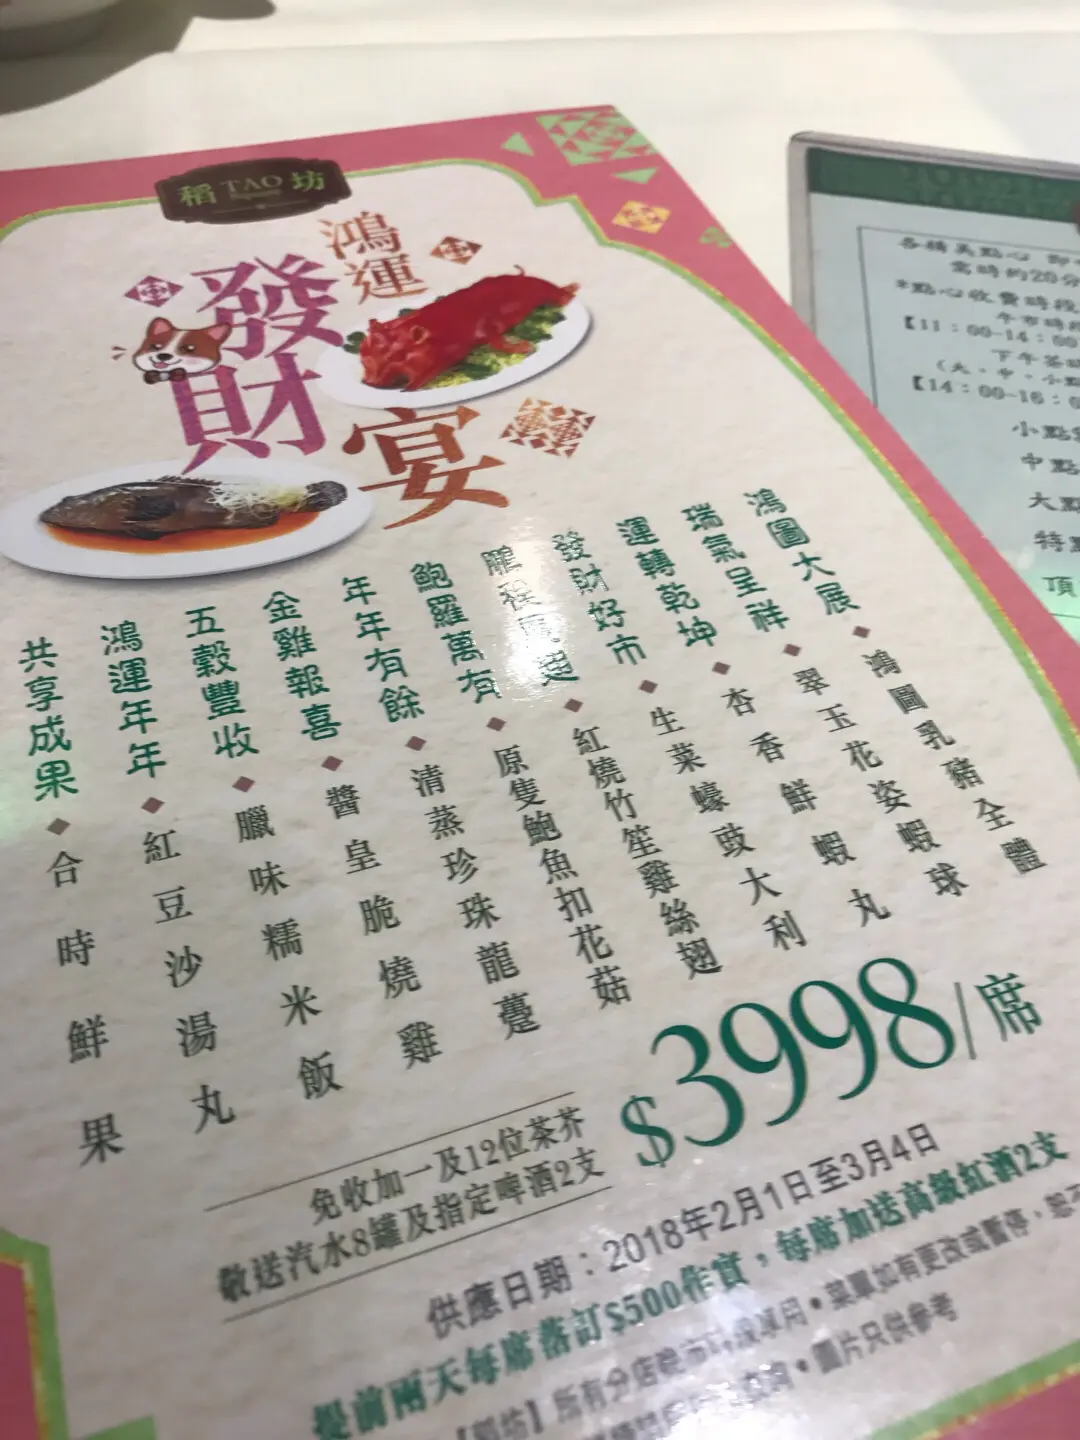 稻 TAO 坊
鴻運
發財
宴
鴻圖大展◆鴻圖乳豬全體
瑞氣呈祥◆翠玉花姿蝦球
運轉乾坤◆杏香鮮蝦丸
發財好市◆生菜蠔豉大利
鵬程萬里◆紅燒竹笙雞絲翅
鮑羅萬有◆原隻鮑魚扣花菇
年年有餘◆清蒸珍珠龍躉
金雞報喜◆醬皇脆燒雞
五穀豐收◆臘味糯米飯
鴻運年年◆紅豆沙湯丸
共享成果◆合時鮮果
$3998/席
免收加一及12位茶芥
敬送汽水8罐及指定啤酒2支
供應日期：2018年2月1日至3月4日
提前兩天每席落訂$500作實，每席加送高級紅酒2支
【稻坊】所有分店晚市 ●菜單如有更改或暫停，恕不
●圖片只供參考
各精美點心 即
當時的20分
*點心收費時段
午市時段
【11：00-14：00
下午茶時
(大、中、小點
【14：00-16：0
小點
中點
大點
特點
頂